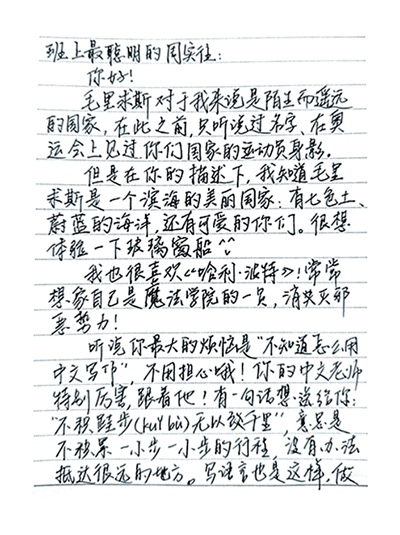 班上最聪明的周实往:
你好!
毛里求斯对于我来说是陌生而遥远
的国家,在此之前,只听说过名字、在奥
运会上见过你们国家的运动员身影。
但是在你的描述下,我知道毛里
求斯是一个滨海的美丽国家:有七色土、
蔚蓝的海洋,还有可爱的你们。很想
体验一下玻璃窗船^^
我也很喜欢《哈利·波特》!常常
想象自己是魔法学院的一员,消灭灭邪
恶势力!
听说你最大的烦恼是“不知道怎么用
中文写作”,不用担心哦!你的中文老师
特别厉害,跟着他!有一句话想说给你:
“不积跬步(kuǐ bù)无以致千里”,意思是
不积累一小步一小步的行程,没有办法
抵达很远的地方。写语言也是这样,做